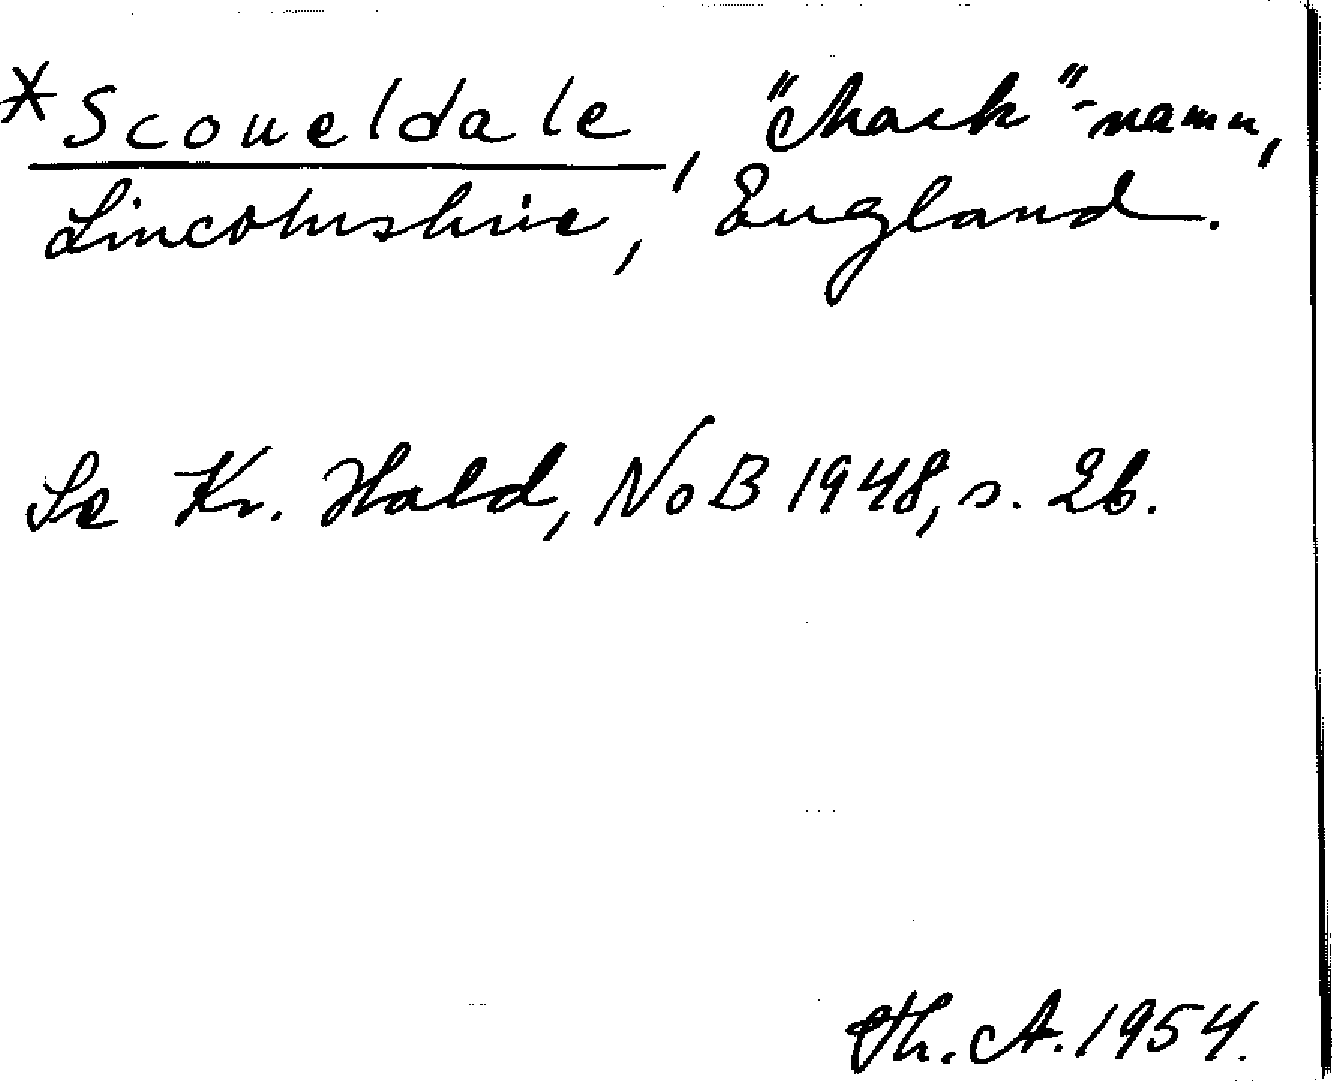 *Scoueldale, "Mark"-namn,
Lincolnshire, England.
Se Kr. Hald, NoB 1948, s. 26.
Th. A. 1954.